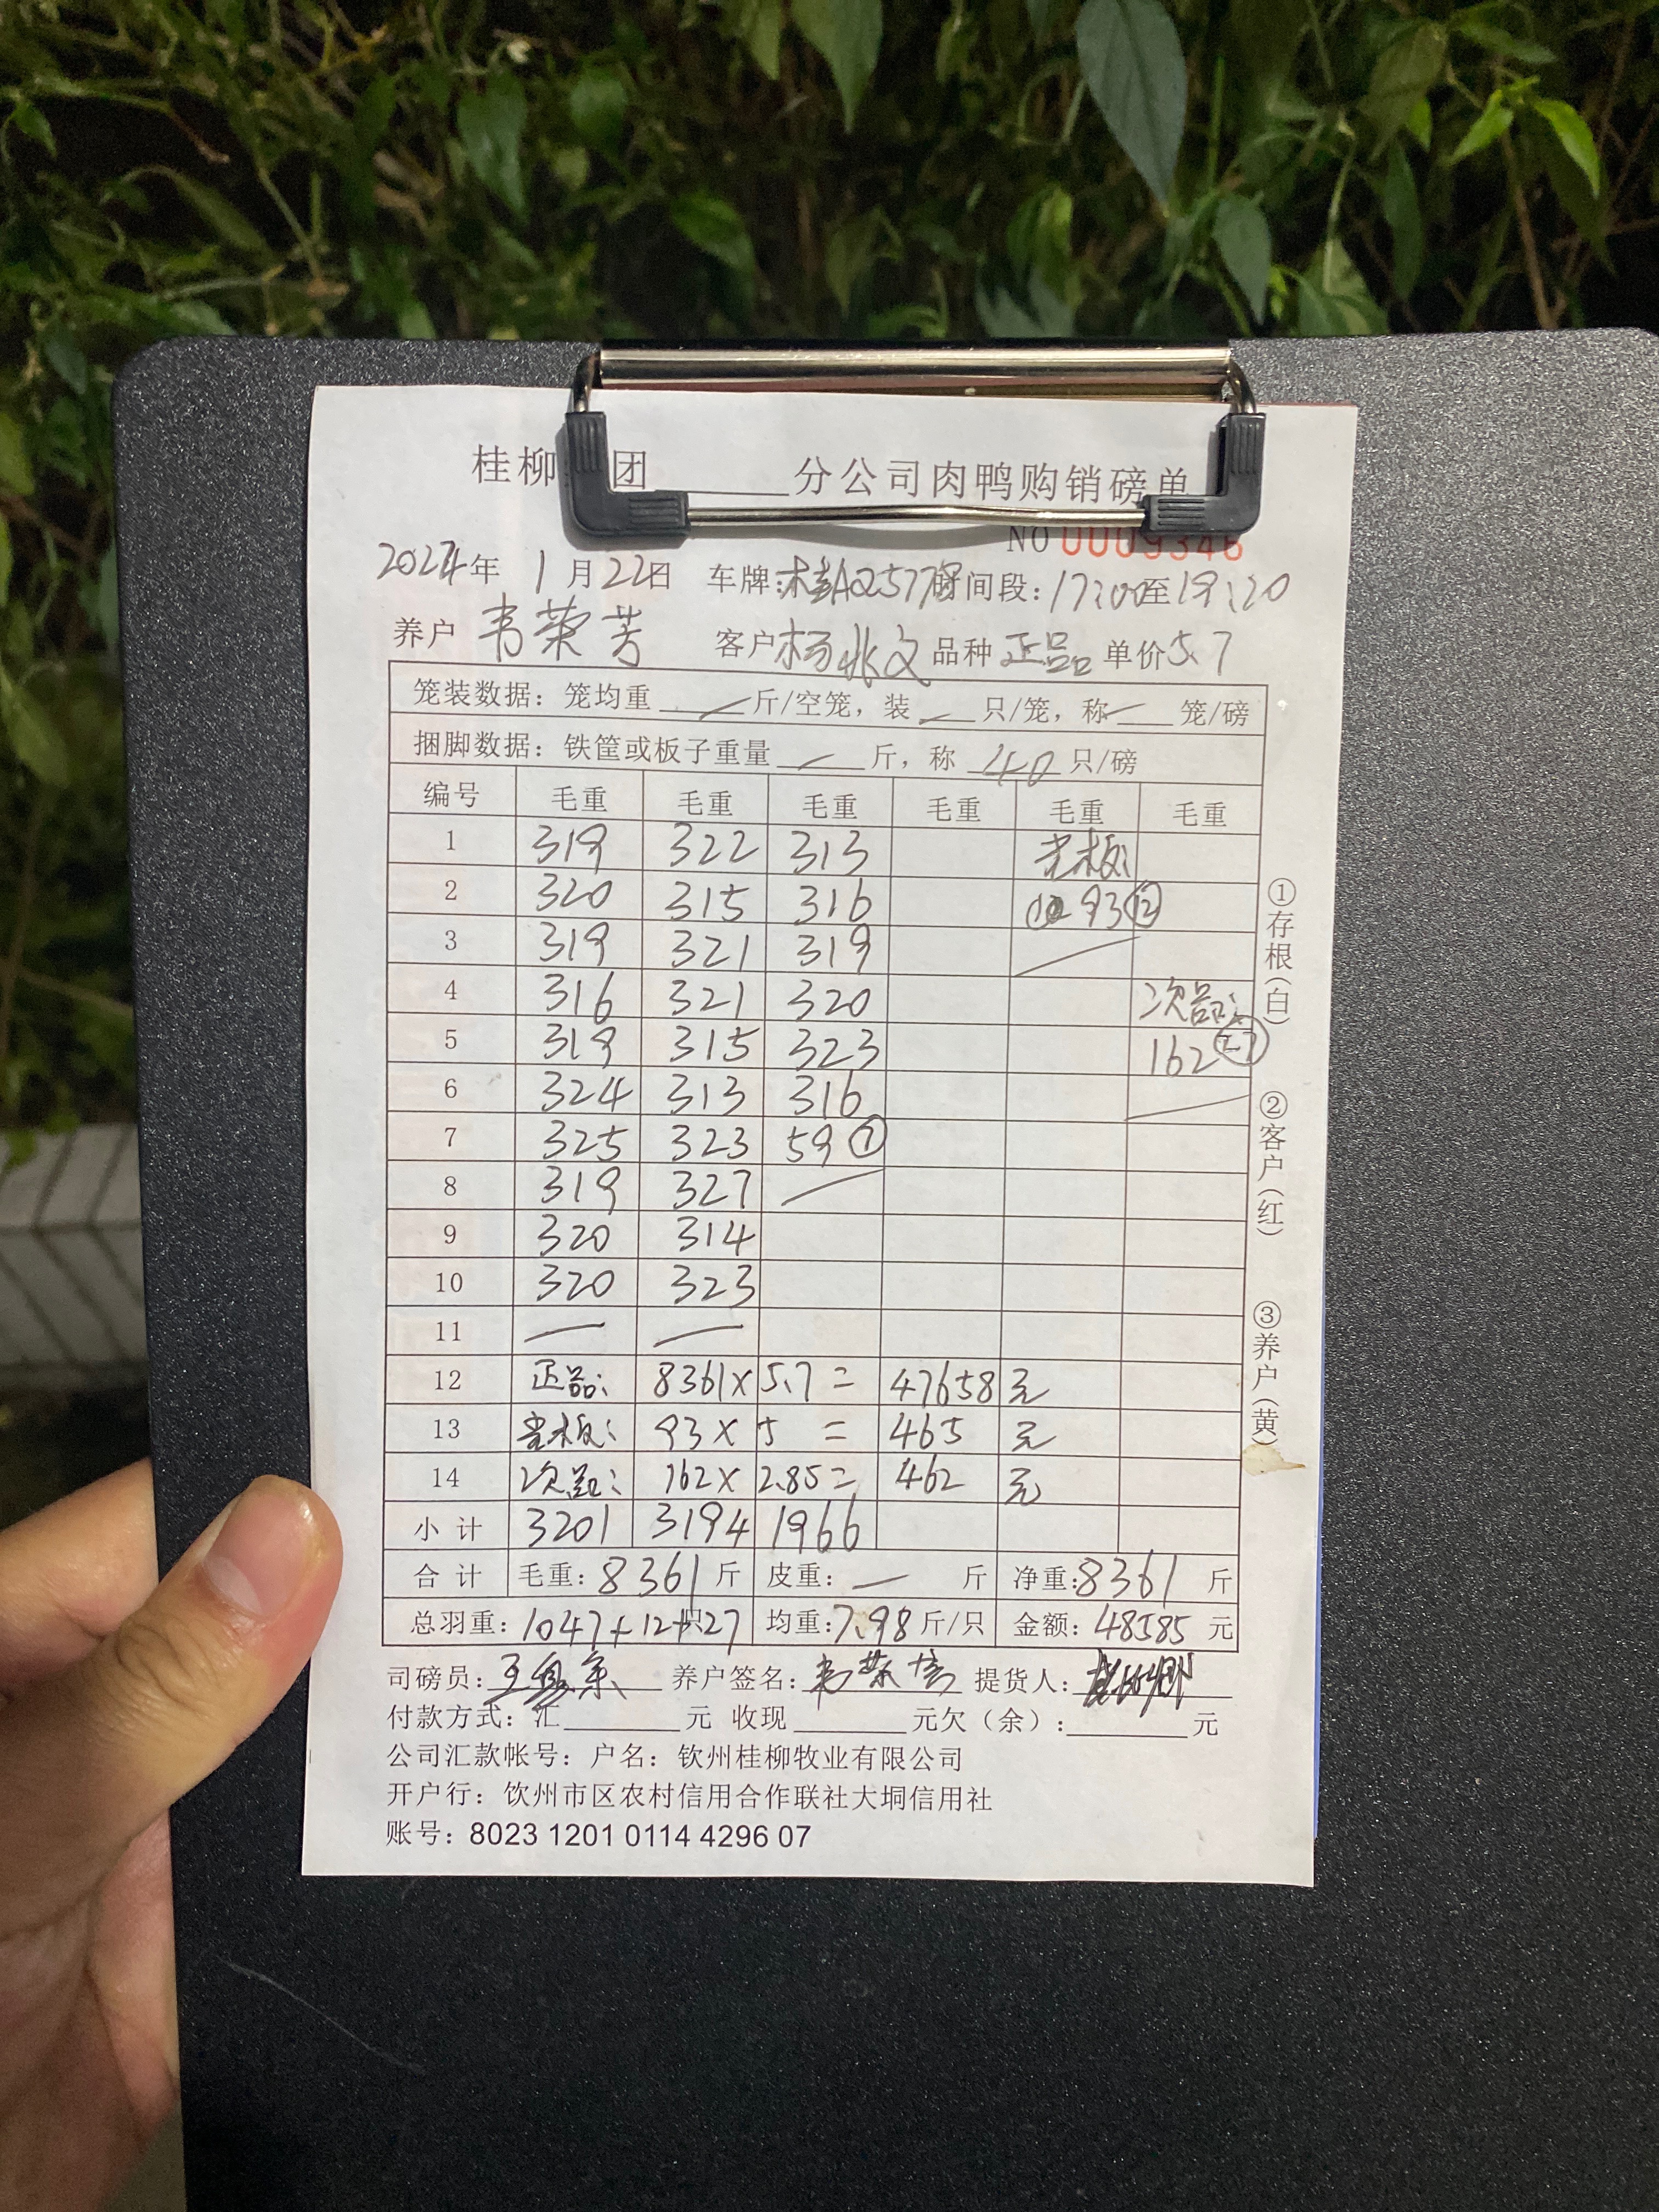 桂柳 团______分公司肉鸭购销磅单
NO 0009346
2024年 1月22日 车牌:桂AQ577 时间段:17:00至19:20
养户 韦荣芳 客户 杨兆文 品种 正品 单价5.7
笼装数据：笼均重 — 斤/空笼，装 — 只/笼，称 — 笼/磅
捆脚数据：铁筐或板子重量 — 斤，称 40 只/磅
编号 毛重 毛重 毛重 毛重 毛重 毛重
1 319 322 313 光板:
2 320 315 316 93 ⑫
3 319 321 319 —
4 316 321 320 次品:
5 319 315 323 162 ㉗
6 324 313 316 —
7 325 323 59 ⑦
8 319 327 —
9 320 314
10 320 323
11 — —
12 正品: 8361× 5.7 = 47658 元
13 光板: 93× 5 = 465 元
14 次品: 162× 2.85= 462 元
小计 3201 3194 1966
合计 毛重:8361斤 皮重: — 斤 净重:8361 斤
总羽重:1047+12+27只 均重:7.98斤/只 金额:48585 元
司磅员: 养户签名: 韦荣 提货人:
付款方式：汇______元 收现______元欠（余）:______元
公司汇款帐号：户名：钦州桂柳牧业有限公司
开户行：饮州市区农村信用合作联社大垌信用社
账号：8023 1201 0114 4296 07
①存根(白)
②客户(红)
③养户(黄)